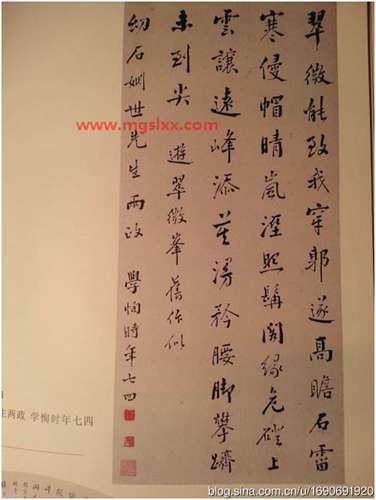 翠微能致我穿郭遂高瞻石霤
寒侵帽晴嵐溼照鬚閣緣危磴上
雲讓遠峰添莫漫矜腰脚攀躋
未到尖 遊翠微峯舊作似
幼石姻世先生兩政 學恂時年七四
www.mgslxx.com
两政 学恂时年七四
blog.sina.com.cn/u/1690691920